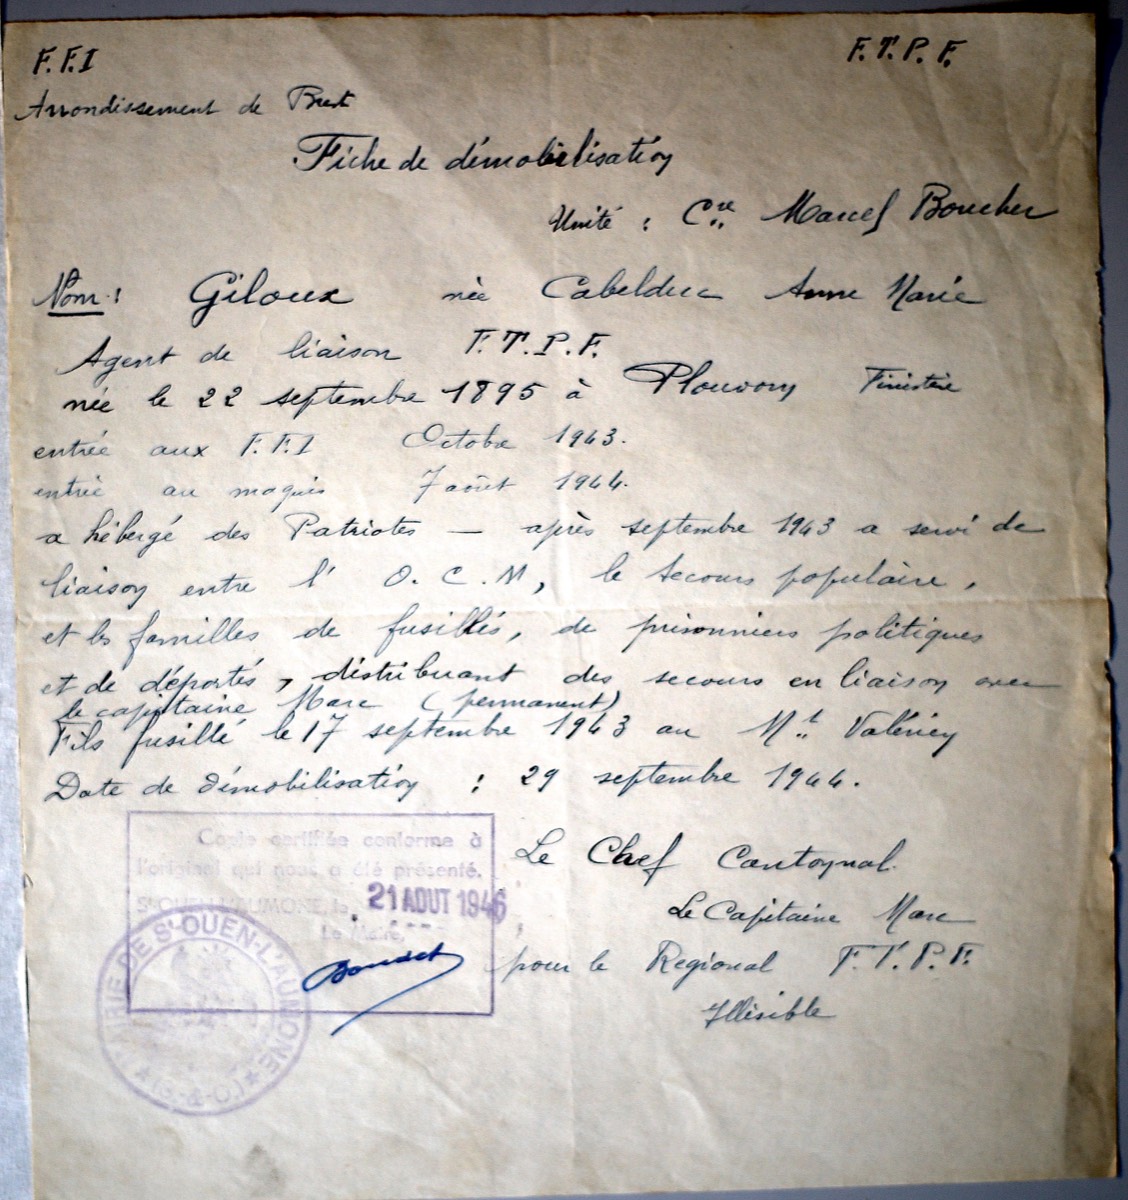 F.F.I
F.T.P.F.
Arrondissement de Brest
Fiche de démobilisation
Unité : Cie Marcel Boucher
Nom : Giloux née Cabelduc Anne Marie
Agent de liaison F.T.P.F.
née le 22 septembre 1895 à Plouvorn Finistère
entrée aux F.F.I Octobre 1943.
entrée au maquis 7 août 1944.
a hébergé des Patriotes — après septembre 1943 a servi de
liaison entre l' O.C.M, le secours populaire,
et les familles de fusillés, de prisonniers politiques
et de déportés, distribuant des secours en liaison avec
le capitaine Marc (permanent)
Fils fusillé le 17 septembre 1943 au Mt Valérien
Date de démobilisation : 29 septembre 1944.
Le Chef Cantonnal.
Le Capitaine Marc
pour le Regional F.T.P.F.
Illisible
Copie certifiée conforme à
l'original qui nous a été présenté.
St-OUEN-L'AUMONE, le 21 AOUT 1946
Le Maire,
MAIRIE DE St-OUEN-L'AUMONE
(S.-&-O.)